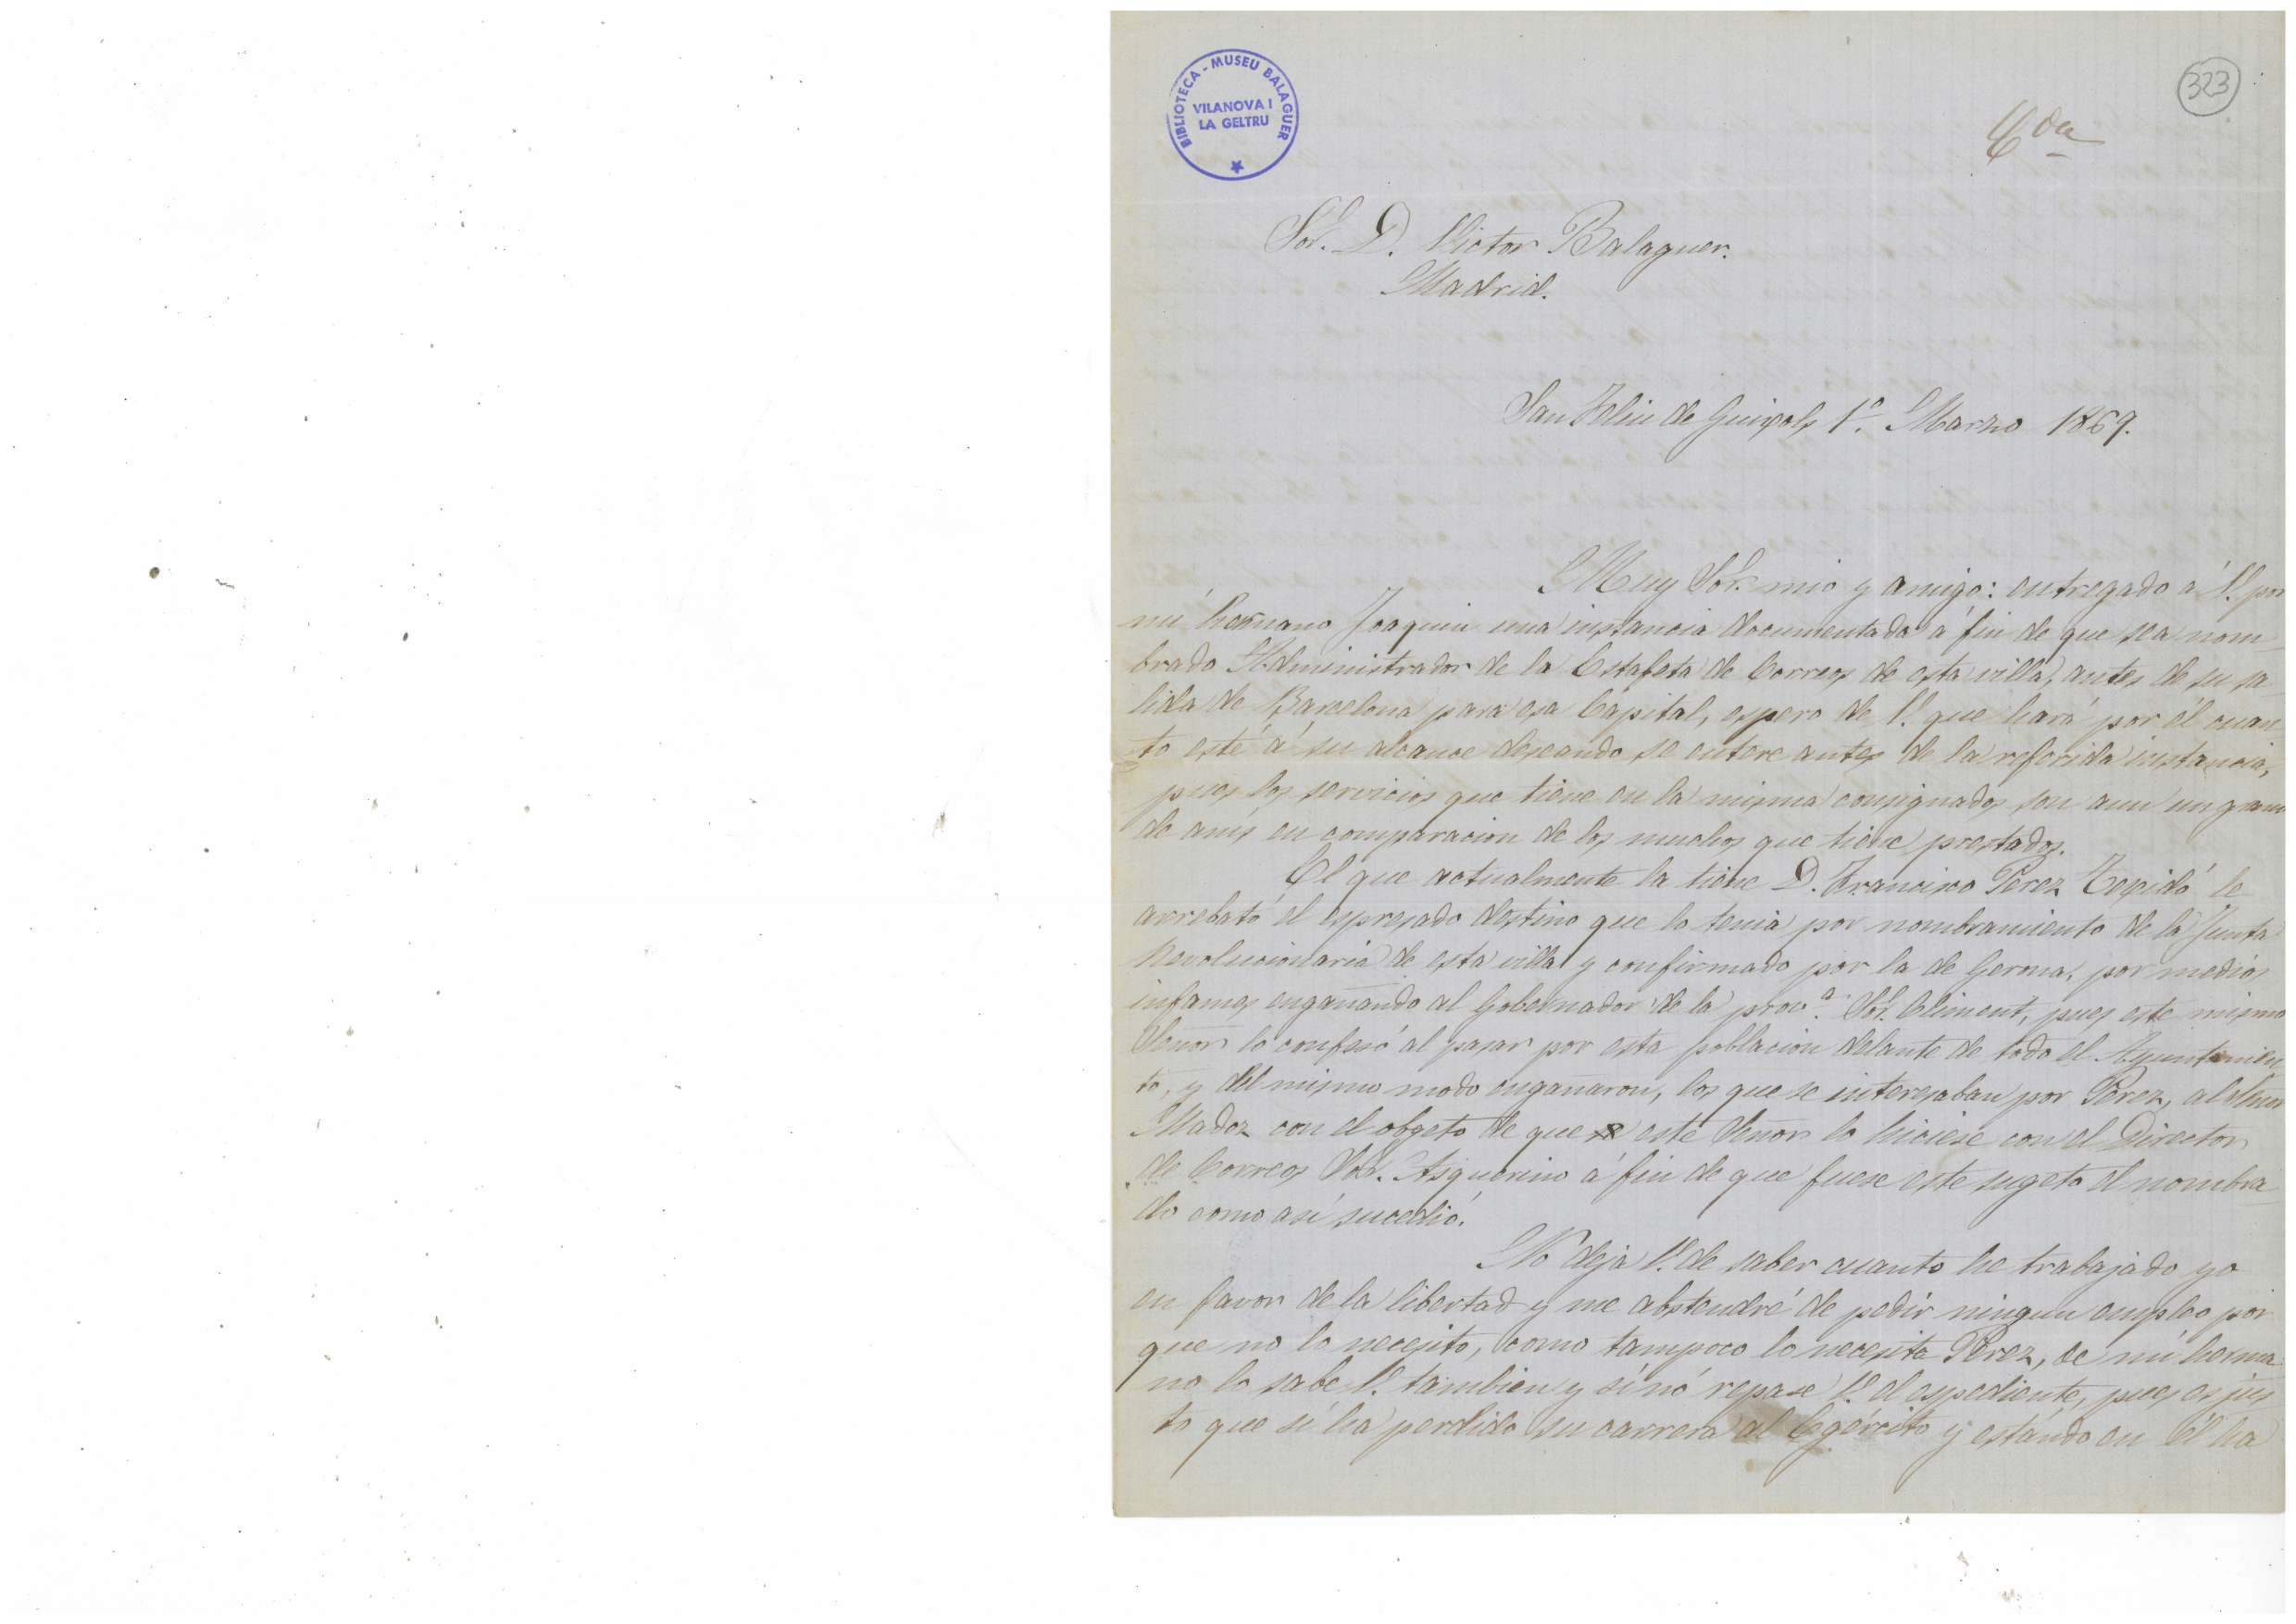 323
BIBLIOTECA - MUSEU BALAGUER
VILANOVA I
LA GELTRU
Cda
Sor. D. Victor Balaguer.
Madrid.
San Feliu de Guixols 1º. Marzo 1869.
Muy Sor. mio y amigo: entregado á V. por
mi hermano Joaquin una instancia documentada á fin de que sea nom
brado Administrador de la Estafeta de Correos de esta villa, antes de su sa
lida de Barcelona para esa Capital, espero de V. que hará por él cuan
to esté á su alcance deseando se entere antes de la referida instancia,
pues los servicios que tiene en la misma consignados son aun un grano
de anís en comparacion de los muchos que tiene prestados.
El que actualmente la tiene D. Francisco Perez le
arrebató el espresado destino que lo tenia por nombramiento de la Junta
Revolucionaria de esta villa y confirmado por la de Gerona, por medios
infames engañando al Gobernador de la prova. Sor. Climent, pues este mismo
Señor lo confesó al pasar por esta poblacion delante de todo el Ayuntamien
to, y del mismo modo engañaron, los que se interesaban por Perez, al Señor
Madoz con el obgeto de que este Señor lo hiciese con el Director
de Correos Sor. Asquerino á fin de que fuese este sugeto el nombra
do como así sucedió.
No deja V. de saber cuanto he trabajado yo
en favor de la libertad y me abstendré de pedir ningun empleo por
que no lo necesito, como tampoco lo necesita Perez, de mi herma
no lo sabe V. tambien y sinó repase V. el espediente, pues es jus
to que si ha perdido su carrera al Egército y estando en él ha